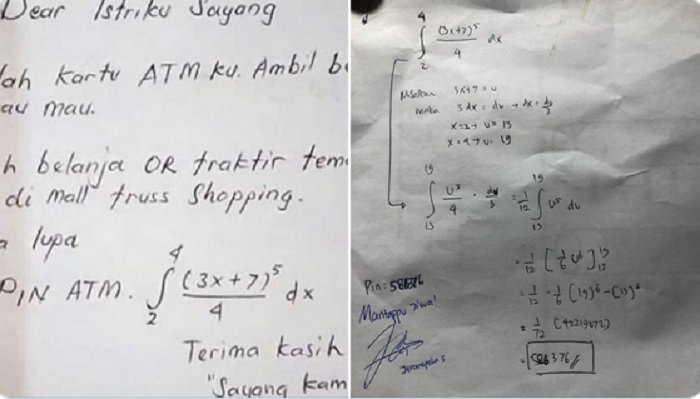 Dear Istriku Sayang
lah kartu ATM ku. Ambil be
au mau.
h belanja OR traktir tem
di mall truss Shopping.
a lupa
PIN ATM. ∫₂⁴ (3x+7)⁵/4 dx
Terima kasih
"Sayang kam
∫₂⁴ (3x+7)⁵/4 dx
Misalkan 3x+7 = u
maka 3 dx = du → dx = du/3
x=2 → u= 13
x=4 → u= 19
∫₁₃¹⁹ u⁵/4 · du/3 = 1/12 ∫₁₃¹⁹ u⁵ du
= 1/12 [1/6 u⁶]₁₃¹⁹
= 1/12 · 1/6 (19)⁶ - (13)⁶
= 1/72 (42219072)
= 586376
Pin: 586376
Mantappu Jiwa!